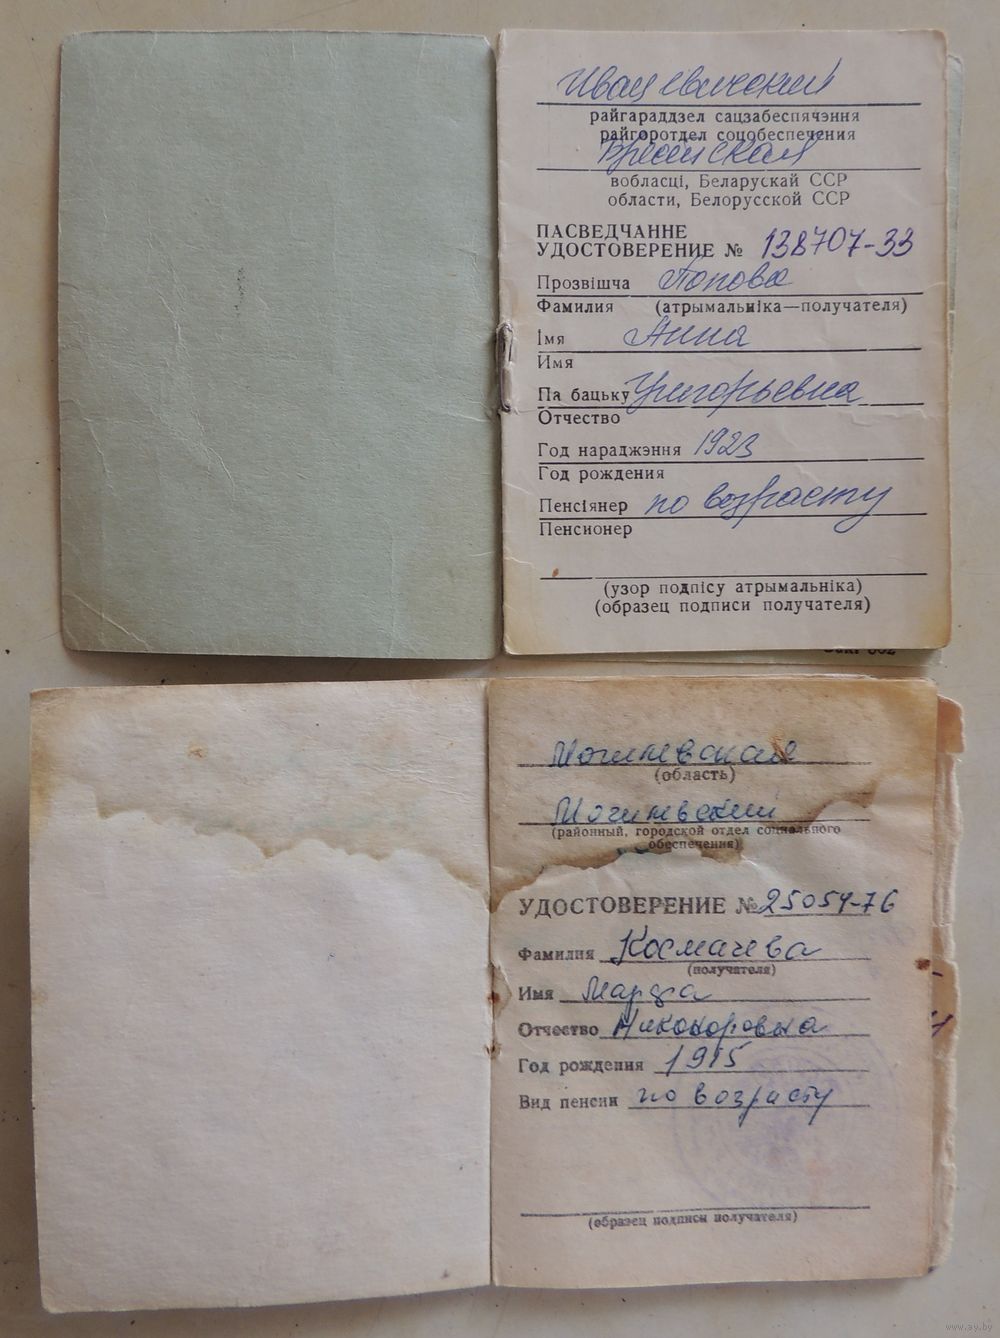 Ивацевичский
райгараддзел сацзабеспячэння
райгоротдел соцобеспечения
Брестская
вобласці, Беларускай ССР
области, Белорусской ССР
ПАСВЕДЧАННЕ
УДОСТОВЕРЕНИЕ № 138707-33
Прозвішча Попова
Фамилия (атрымальніка—получателя)
Імя Анна
Имя
Па бацьку Григорьевна
Отчество
Год нараджэння 1923
Год рождения
Пенсіянер по возрасту
Пенсионер
(узор подпісу атрымальніка)
(образец подписи получателя)
Могилевская
(область)
Могилевский
(районный, городской отдел социального
обеспечения)
УДОСТОВЕРЕНИЕ № 25054-76
Фамилия Космачева
(получателя)
Имя Марфа
Отчество Никоноровна
Год рождения 1915
Вид пенсии по возрасту
(образец подписи получателя)
www.ay.by